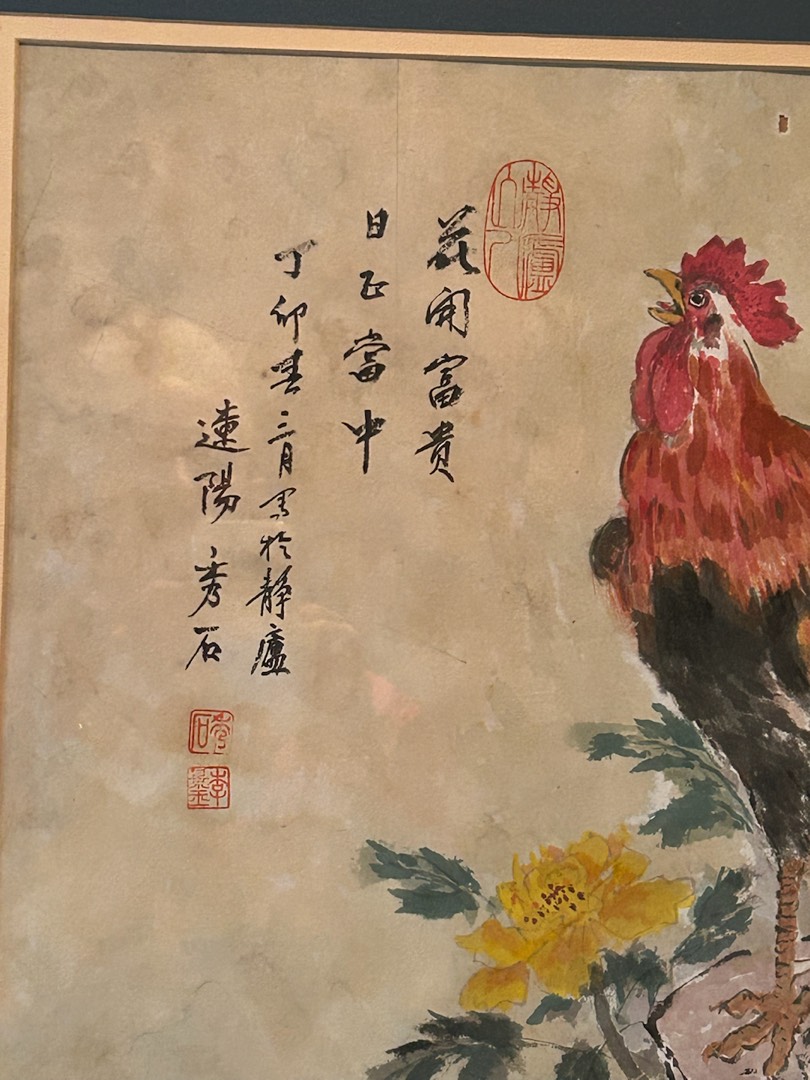 花開富貴
日正當中
丁卯春三月写於静廬
連陽秀石